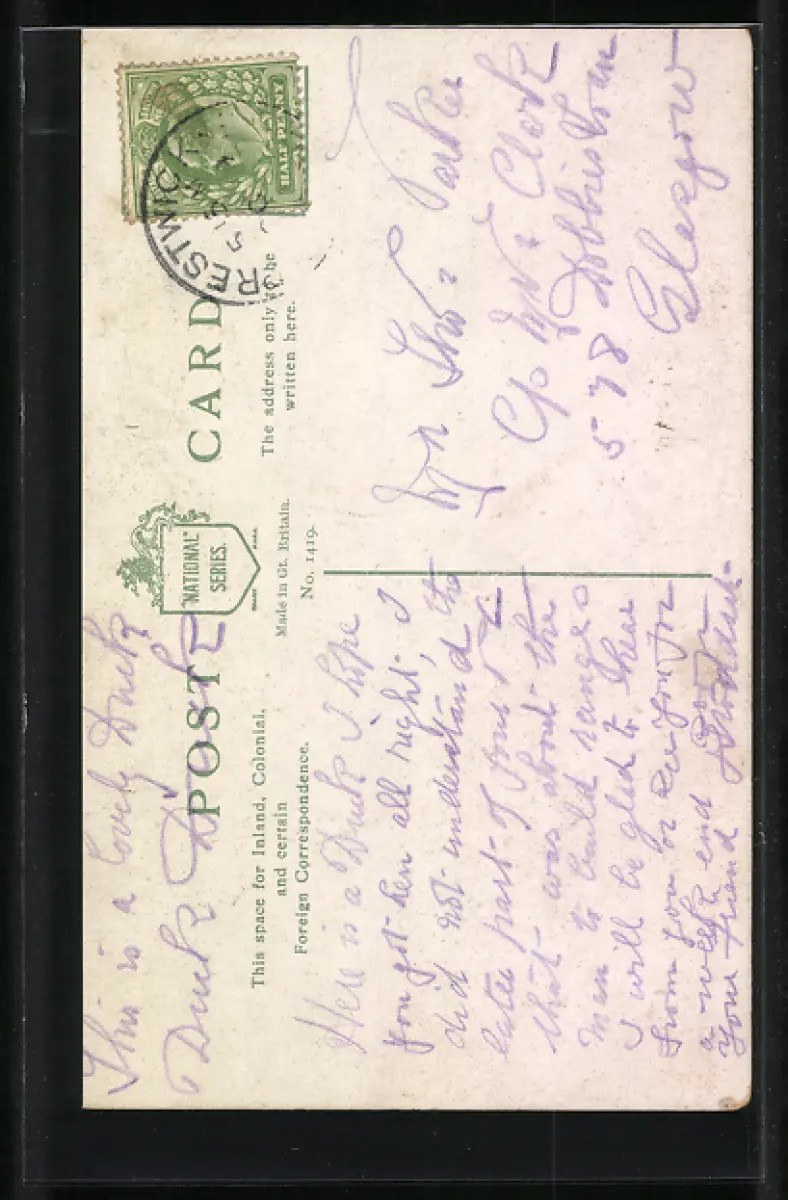 This is a lovely Duck
Duck Duck
POST CARD
"NATIONAL"
SERIES.
This space for Inland, Colonial,
and certain
Foreign Correspondence.
Made in Gt. Britain.
No. 1419.
The address only to be
written here.
HALF PENNY
PRESTWICK
Here is a Duck I hope
you got hen all right, I
did not understand the
later part of
that was about the
men to build ranges
I will be glad to hear
from you or see you for
a week end
your friend
Mr Thos Parker
C/o Mrs Clark
578
Glasgow